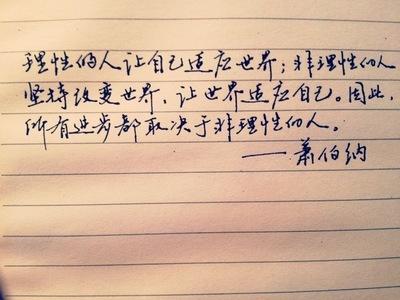 理性的人让自己适应世界；非理性的人
坚持改变世界，让世界适应自己。因此，
所有进步都取决于非理性的人。
——萧伯纳